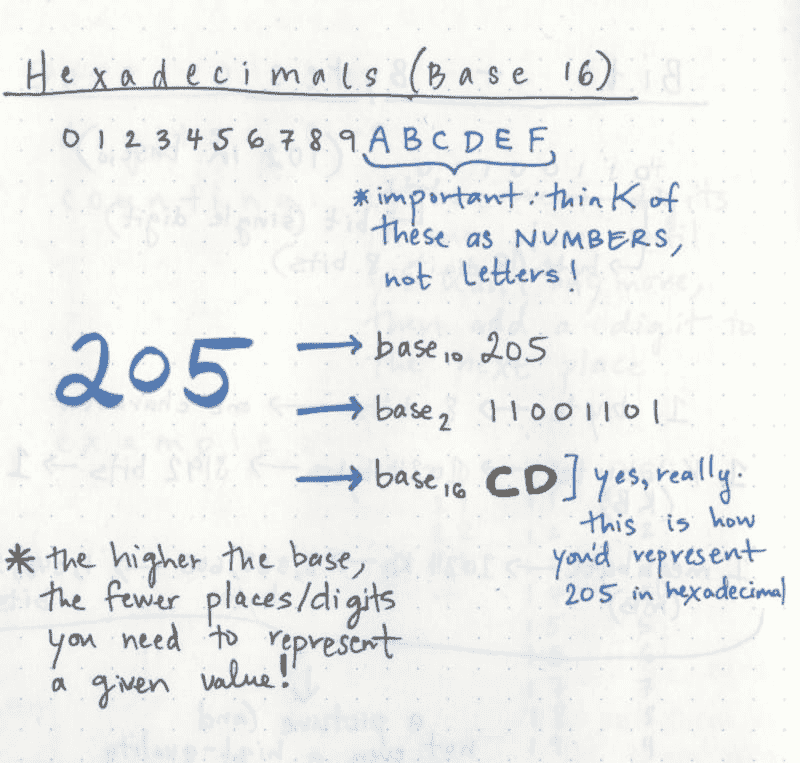 Hexadecimals (Base 16)
0 1 2 3 4 5 6 7 8 9 A B C D E F
*important: think of
these as NUMBERS,
not letters!
205
→ base₁₀ 205
→ base₂ 11001101
→ base₁₆ CD ] yes, really.
this is how
you'd represent
205 in hexadecimal
* the higher the base,
the fewer places/digits
you need to represent
a given value!